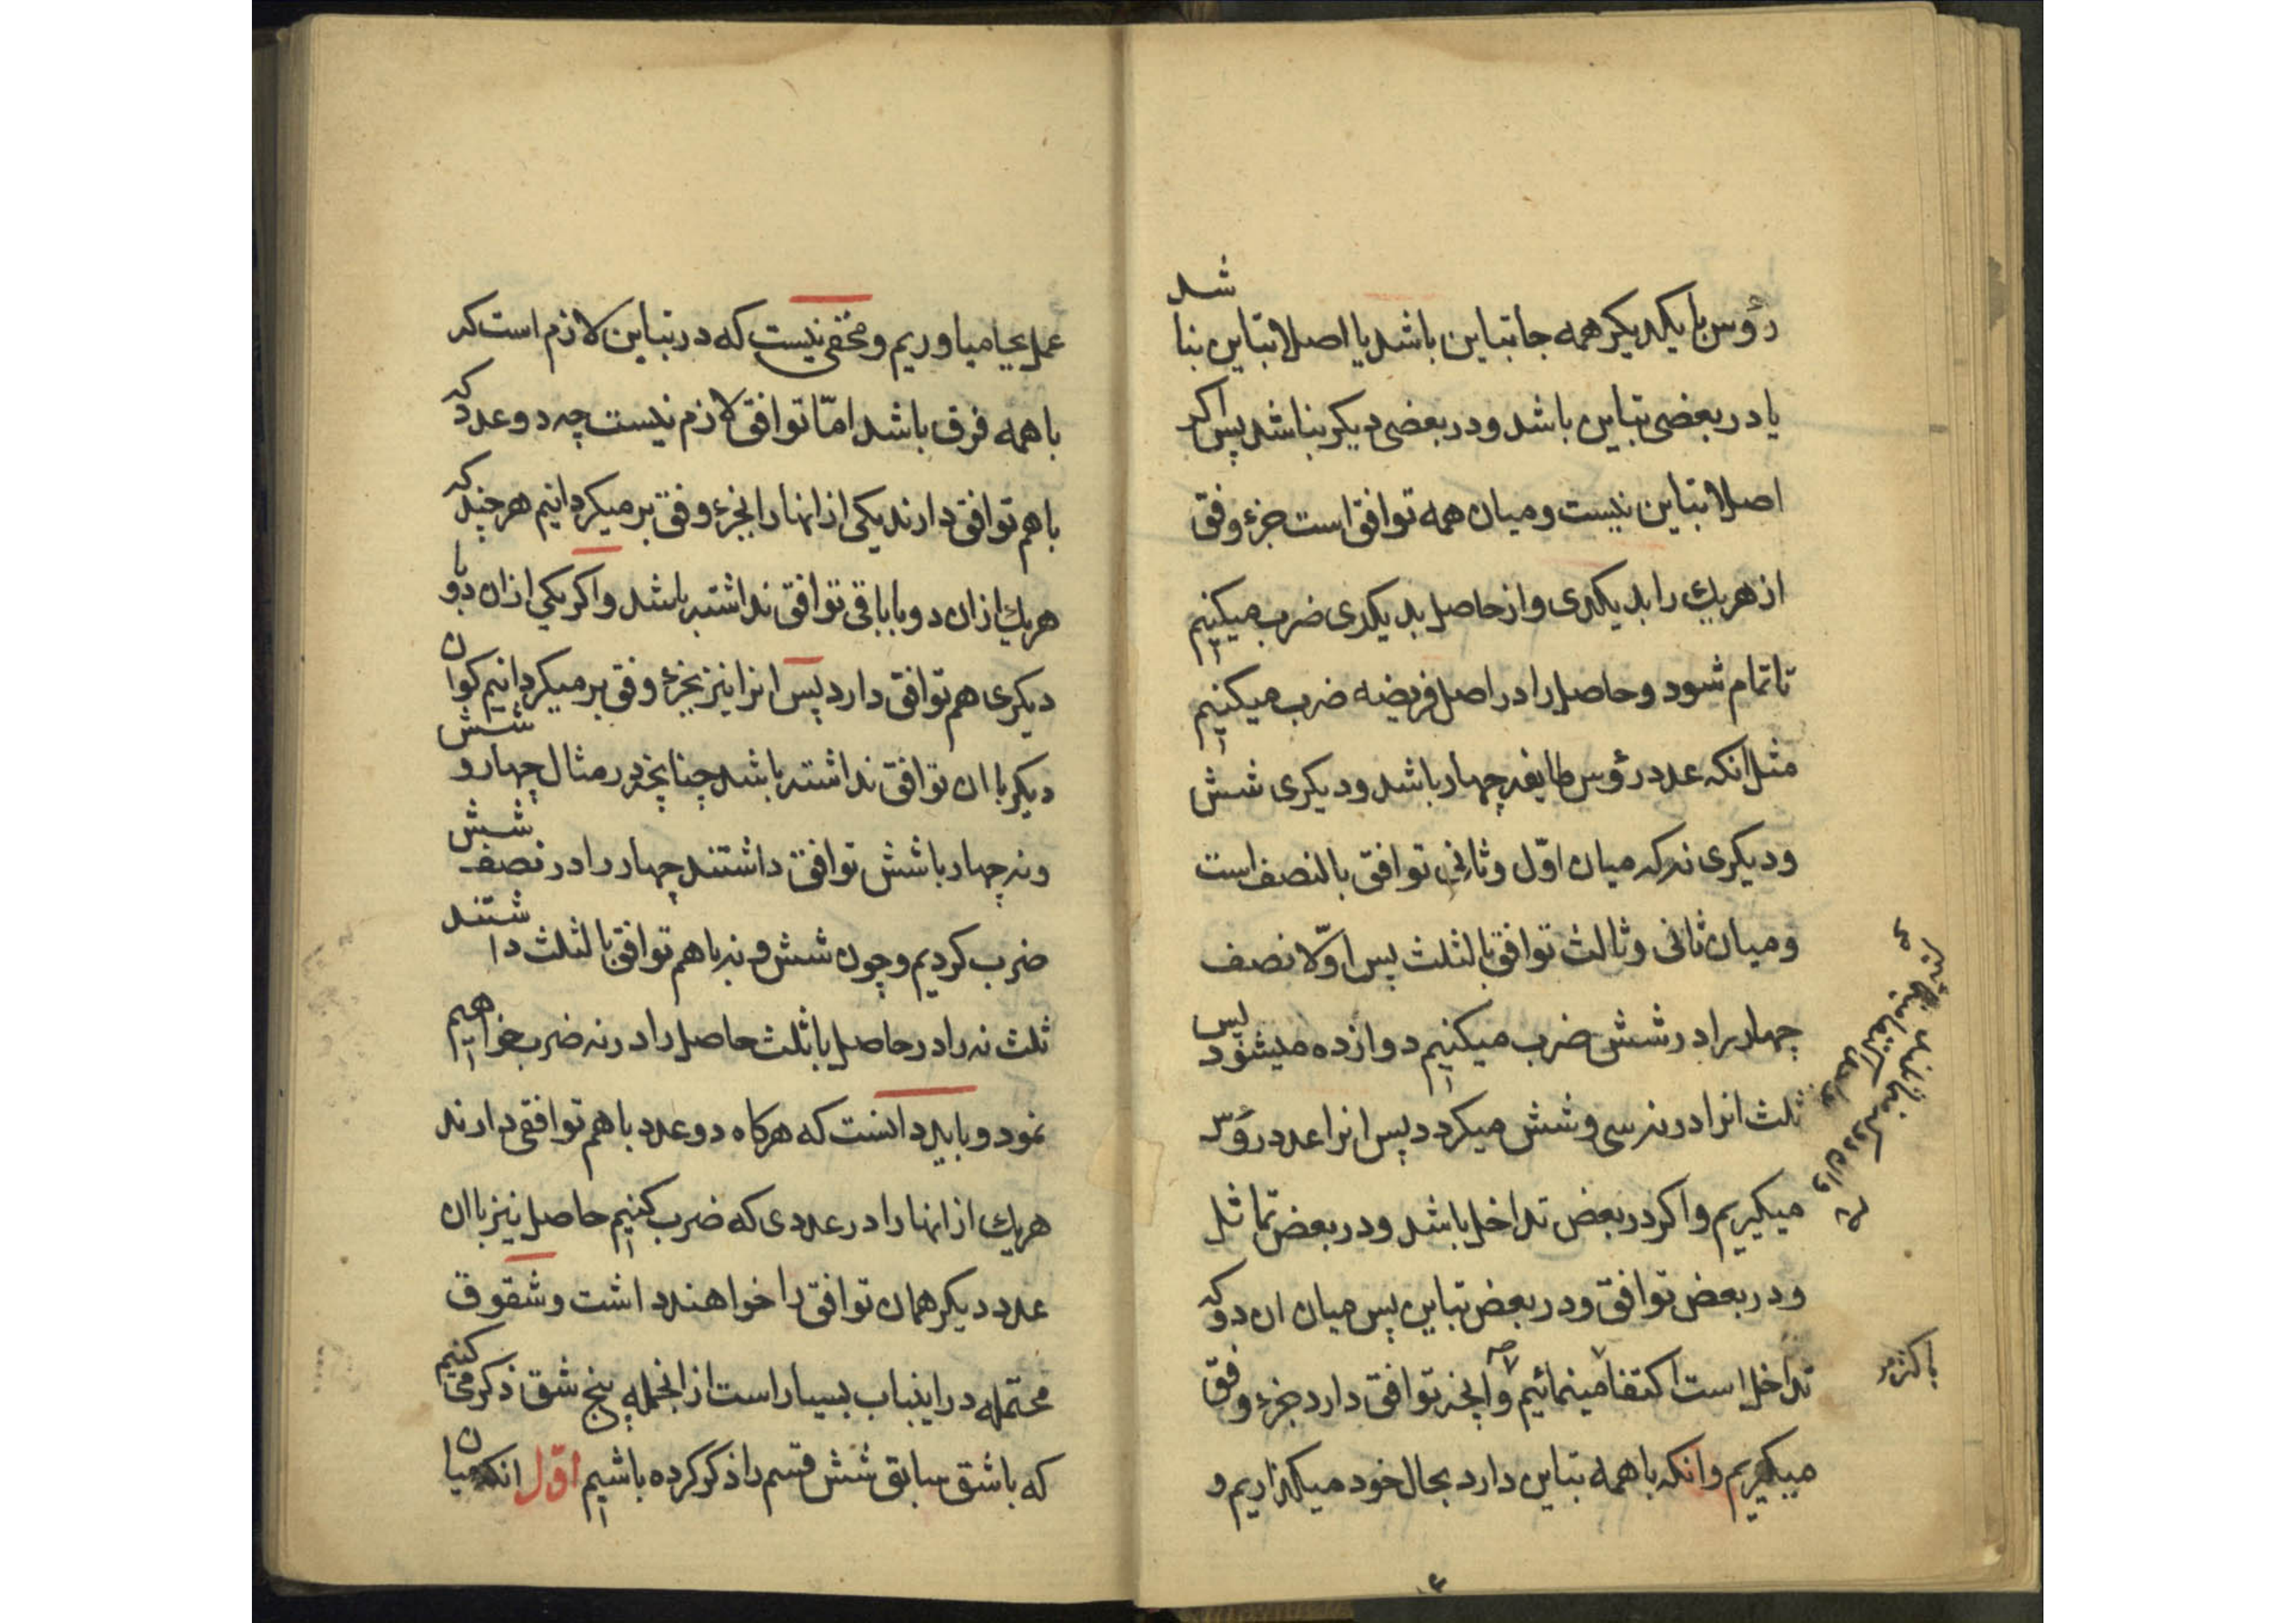 رؤس با یکدیکر همه جا تباین باشد یا اصلا تباین نباشد
یا در بعضی تباین باشد و در بعضی دیکر نباشد پس اکر
اصلا تباین نیست و میان همه توافق است جزء وفق
از هریك را بدیکدی و از حاصل بدیکدی ضرب میکنیم
تا تمام شود و حاصل را در اصل فریضه ضرب میکنیم
مثل انکه عدد رؤس طایفه چهار باشد و دیکری شش
و دیکری نه که میان اوّل و ثانی توافق بالنصف است
و میان ثانی و ثالث توافق بالثلث پس اوّلا نصف
چهار را در شش ضرب میکنیم دوازده میشود پس
ثلث انرا در نه سی و شش میکردد پس انرا عدد رؤس
میکیریم و اکر در بعض تداخل باشد و در بعض تماثل
و در بعض توافق و در بعض تباین پس میان ان دو که
تداخل است اکتفا مینمائیم و انچه توافق دارد جزء وفق
میکیریم و انکه با همه تباین دارد بحال خود میکذاریم و
باکثر
عمل بجا میاوریم و مخفی نیست که در تباین لازم است که
با همه فرق باشد امّا توافق لازم نیست چه دو عدد که
با هم توافق دارند یکی از انها را بجزء وفق بر میکردانیم هر چند که
هریك از ان دو با باقی توافق نداشته باشد و اکر یکی از ان دو با
دیکری هم توافق دارد پس انرا نیز بجزء وفق بر میکردانیم کو ان
دیکر با ان توافق نداشته باشد چنانچه در مثال چهار و شش
و نه چهار با شش توافق داشتند چهار را در نصف شش
ضرب کردیم و چون شش و نه با هم توافق بالثلث داشتند
ثلث نه را در حاصل یا ثلث حاصل را در نه ضرب خواهیم
نمود و باید دانست که هرکاه دو عدد با هم توافقی دارند
هریك از انها را در عددی که ضرب کنیم حاصل نیز با ان
عدد دیکر همان توافق را خواهند داشت و شقوق
محتمله در اینباب بسیار است از انجمله پنج شق ذکر می کنیم
که با شق سابق شش قسم را ذکر کرده باشیم اوّل انکه میان